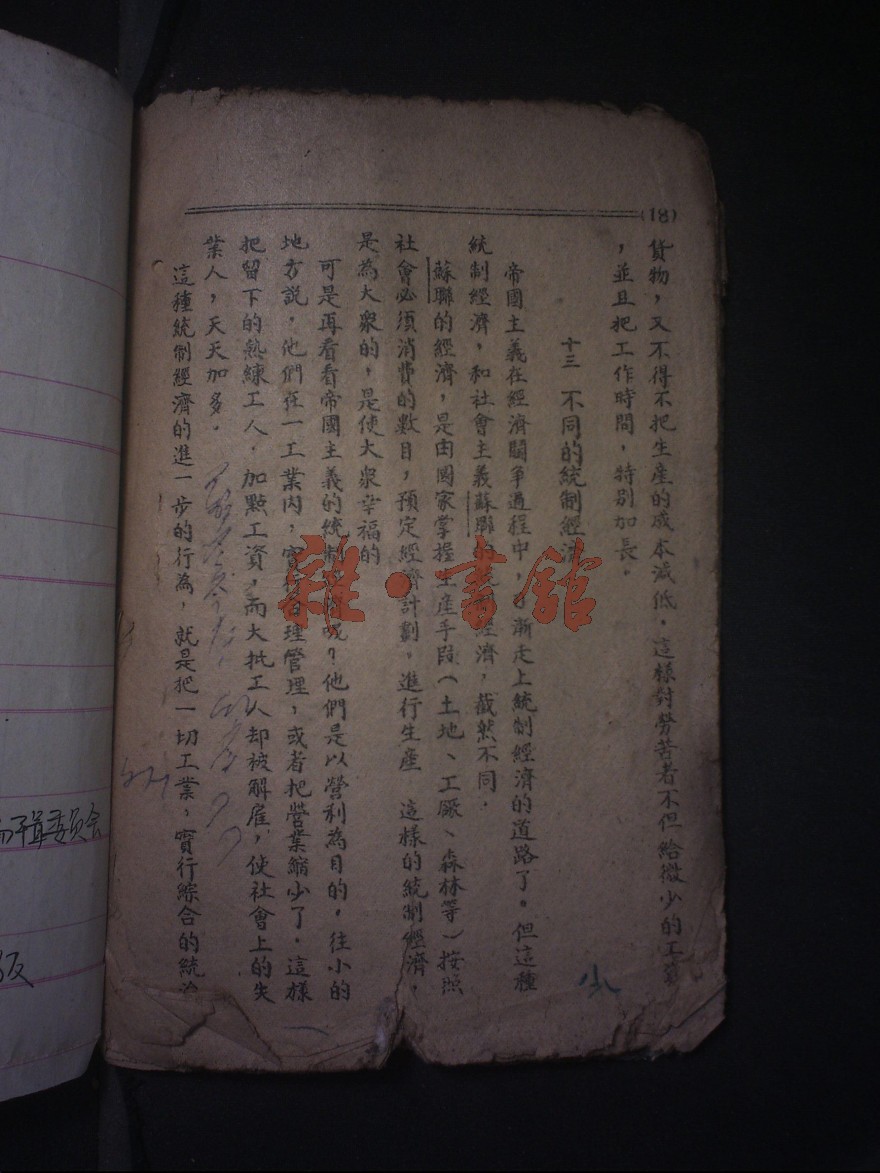 (18)
貨物，又不得不把生產的成本減低．這樣對勞苦者不但給微少的工資
，並且把工作時間，特別加長．
十三 不同的統制經濟
帝國主義在經濟鬭爭過程中，漸走上統制經濟的道路了。但這種
統制經濟，和社會主義蘇聯的統制經濟，截然不同．
蘇聯的經濟，是由國家掌握生產手段（土地、工厰、森林等）按照
社會必須消費的數目，預定經濟計劃，進行生產 這樣的統制經濟，
是為大衆的，是使大衆幸福的
可是再看看帝國主義的統制 呢？他們是以營利為目的，往小的
地方說．他們在一工業內，實行合理管理，或者把營業縮少了．這樣
把留下的熟練工人．加點工資，而大批工人却被解雇，使社會上的失
業人，天天加多．
這種統制經濟的進一步的行為，就是把一切工業，實行綜合的統治
少
雜·書館
委员会
版